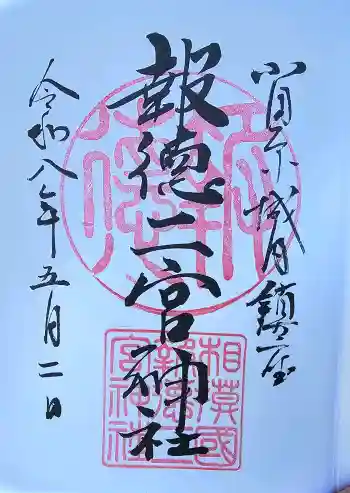 小田原城内鎮座
報徳二宮神社
令和八年五月二日
相莫國
報德二
宮神社